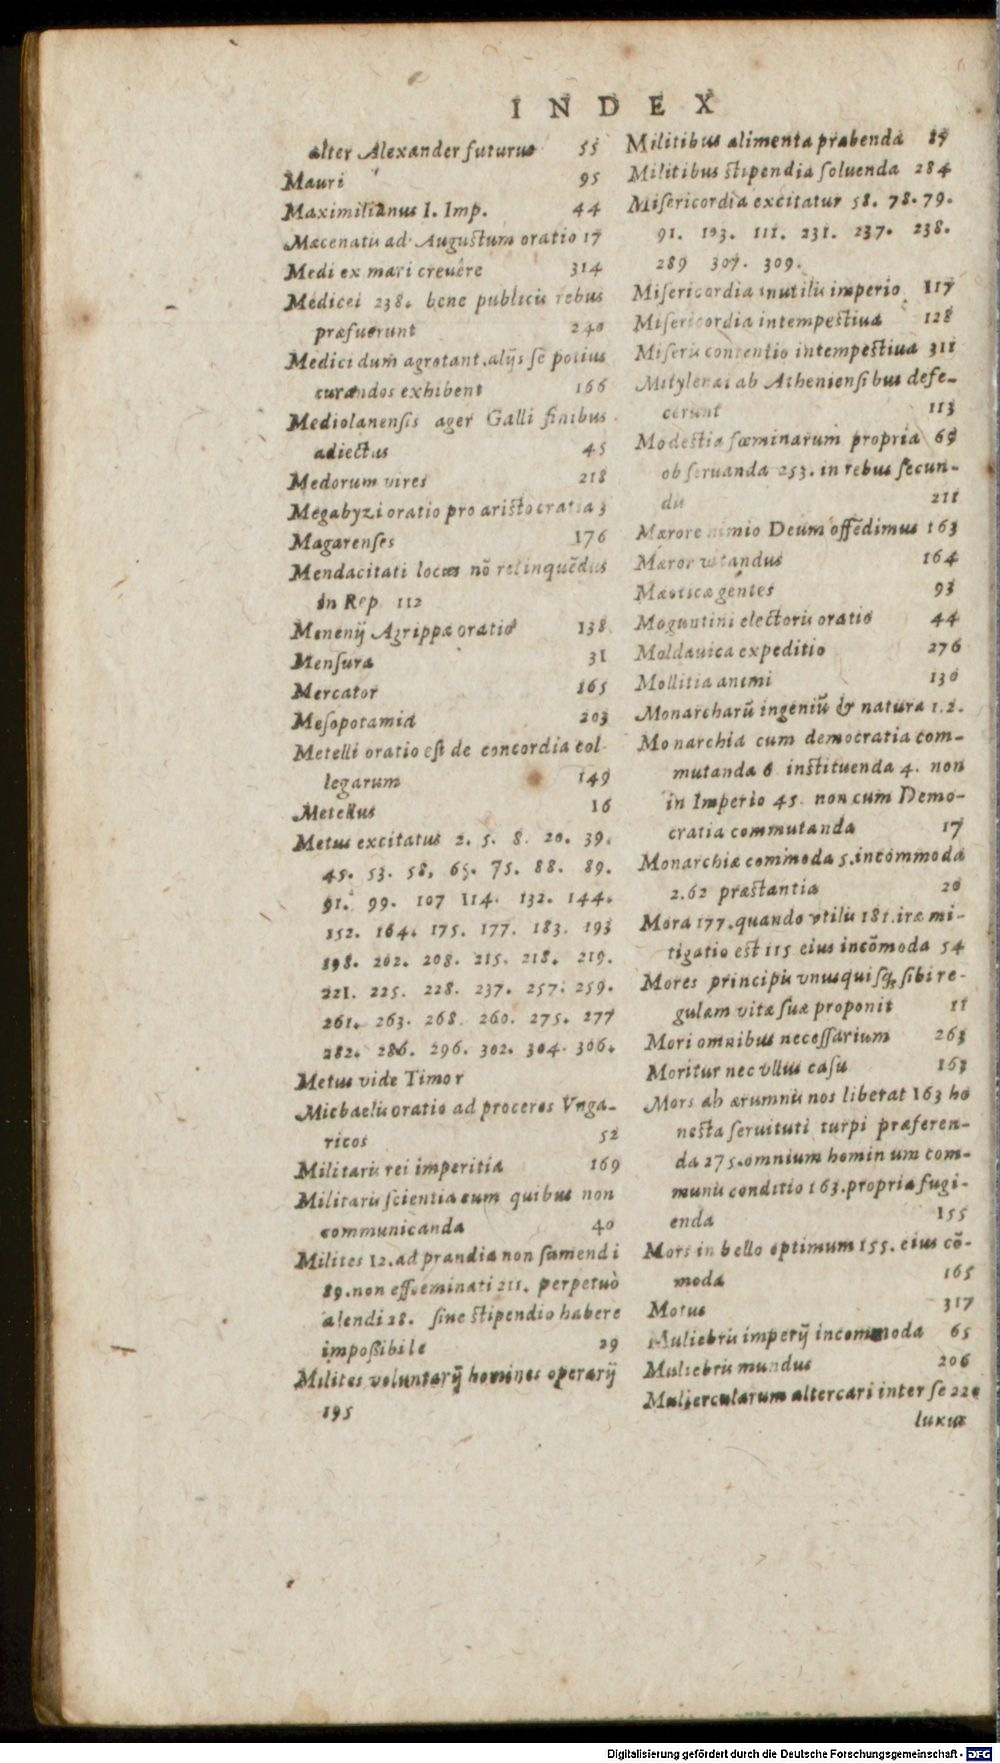 INDEX
alter Alexander futurus 55
Mauri 95
Maximilianus I. Imp. 44
Mæcenatis ad Augustum oratio 17
Medi ex mari crevêre 314
Medicei 238. bene publicis rebus
præfuerunt 240
Medici dum ægrotant, alijs se potius
curandos exhibent 166
Mediolanensis ager Galli finibus
adiectus 45
Medorum vires 218
Megabyzi oratio pro aristocratia 3
Magarenses 176
Mendacitati locus nõ relinquẽdus
in Rep 112
Menenij Agrippæ oratio 138
Mensura 31
Mercator 165
Mesopotamia 203
Metelli oratio est de concordia col-
legarum 149
Metellus 16
Metus excitatus 2. 5. 8. 20. 39.
45. 53. 58, 65. 75. 88. 89.
91. 99. 107 114. 132. 144.
152. 164. 175. 177. 183. 193
198. 202. 208. 215. 218. 219.
221. 225. 228. 237. 257. 259.
261. 263. 268. 260. 275. 277
282. 286. 296. 302. 304. 306.
Metus vide Timor
Michaelis oratio ad proceres Vnga-
ricos 52
Militaris rei imperitia 169
Militaris scientia cum quibus non
communicanda 40
Milites 12. ad prandia non sumendi
89. non effœminati 211. perpetuò
alendi 28. sine stipendio habere
impoßibile 29
Milites voluntarij homines operarij
195
Militibus alimenta præbenda 87
Militibus stipendia soluenda 284
Misericordia excitatur 58. 78. 79.
91. 103. 111. 231. 237. 238.
289 307. 309.
Misericordia inutilis imperio 117
Misericordia intempestiua 128
Miseris contentio intempestiua 311
Mitylenæi ab Atheniensibus defe-
cerunt 113
Modestia fœminarum propria 69
obseruanda 253. in rebus secun-
dis 211
Mærore nimio Deum offẽdimus 163
Mæror vitandus 164
Mæoticæ gentes 93
Moguntini electoris oratio 44
Moldauica expeditio 276
Mollitia animi 130
Monarcharũ ingeniũ & natura 1. 2.
Monarchia cum democratia com-
mutanda 6 instituenda 4. non
in Imperio 45. non cum Demo-
cratia commutanda 17
Monarchiæ commoda 5. incommoda
2.62 præstantia 20
Mora 177. quando vtilis 181. iræ mi-
tigatio est 115 eius incõmoda 54
Mores principis vnusquisq; sibi re-
gulam vitæ suæ proponit 11
Mori omnibus necessarium 263
Moritur nec vllus casu 163
Mors ab ærumnis nos liberat 163 ho
nesta seruituti turpi præferen-
da 275. omnium hominum com-
munis conditio 163. propria fugi-
enda 155
Mors in bello optimum 155. eius cõ-
moda 165
Motus 317
Muliebris imperij incommoda 65
Muliebris mundus 206
Muliercularum altercari inter se 220
luxus
Digitalisierung gefördert durch die Deutsche Forschungsgemeinschaft - DFG